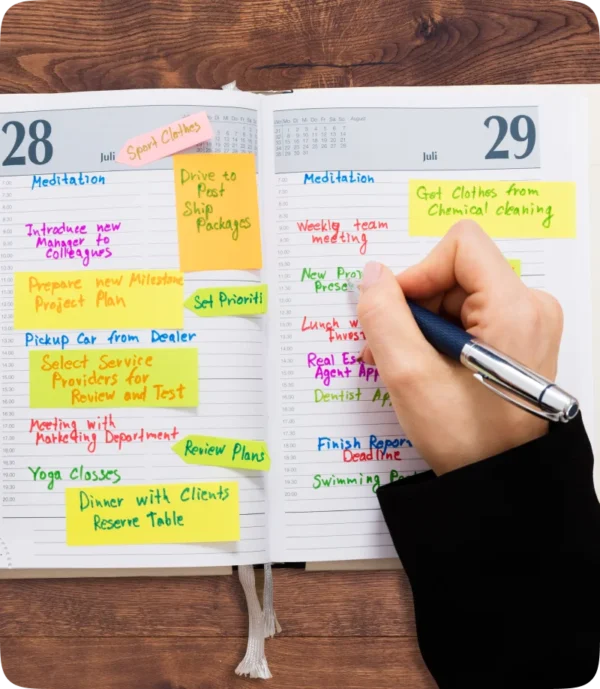 28
Juli
Sport Clothes
Meditation
Drive to
Post
Ship
Packages
Introduce new
Manager to
Colleagues
Prepare new Milestone
Project Plan
Set Prioriti
Pickup Car from Dealer
Select Service
Providers for
Review and Test
Meeting with
Marketing Department
Review Plans
Yoga Classes
Dinner with Clients
Reserve Table
August
Juli
29
Meditation
Get Clothes from
Chemical cleaning
Weekly team
meeting
New
Prese
Lunch w
Invest
Real Es
Agent App
Dentist Ap
Finish Report
Deadline
Swimming